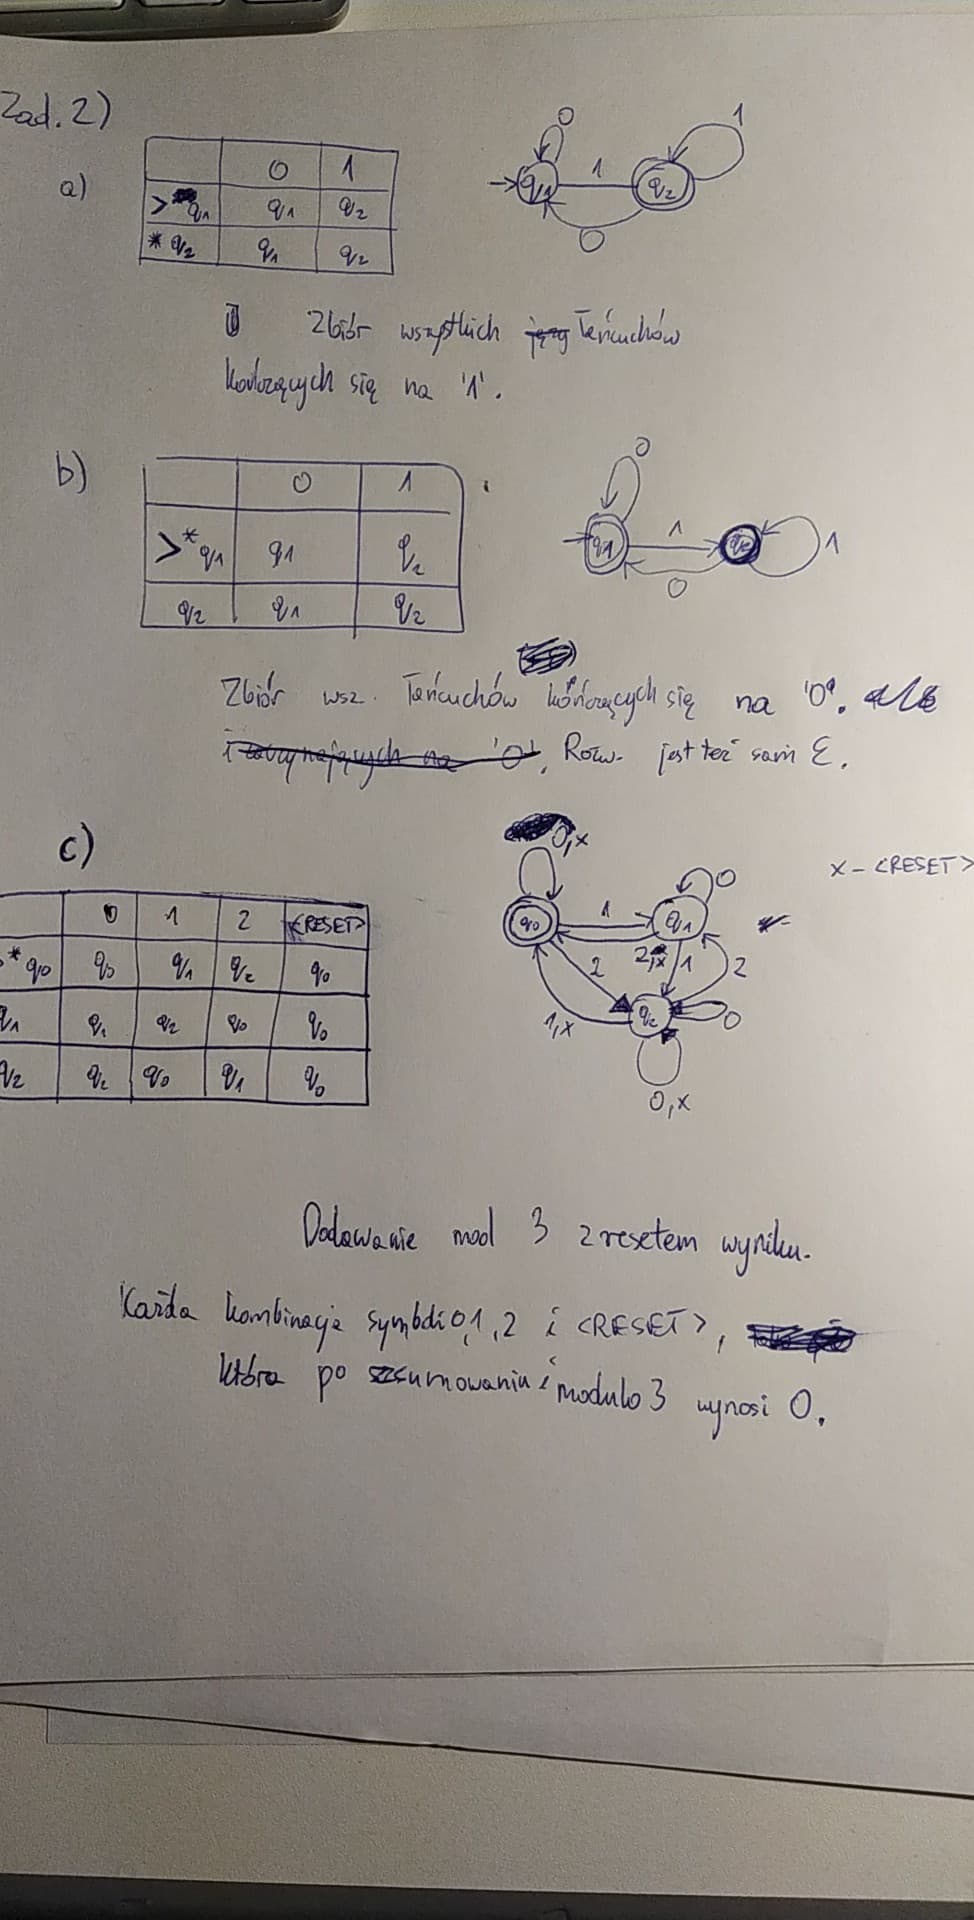 Zad. 2)
a)
0 1
>q1 q1 q2
* q2 q1 q2
→ q1 0 1 q2 1 0
Zbiór wszystkich łańcuchów
kończących się na '1'.
b)
0 1
>*q1 q1 q2
q2 q1 q2
q1 0 1 q2 1 0
Zbiór wsz. łańcuchów kończących się na '0'.
i zaczynających na '0', Rozw. jest też sam ε.
c)
0 1 2 <RESET>
*q0 q0 q1 q2 q0
q1 q1 q2 q0 q0
q2 q2 q0 q1 q0
0,x
x - <RESET>
q0 1 q1 0
2 2,x 1 2
1,x q2 0
0,x
Dodawanie mod 3 z resetem wyniku.
Każda kombinacja symboli 0,1,2 i <RESET>,
która po zsumowaniu i modulo 3 wynosi 0.